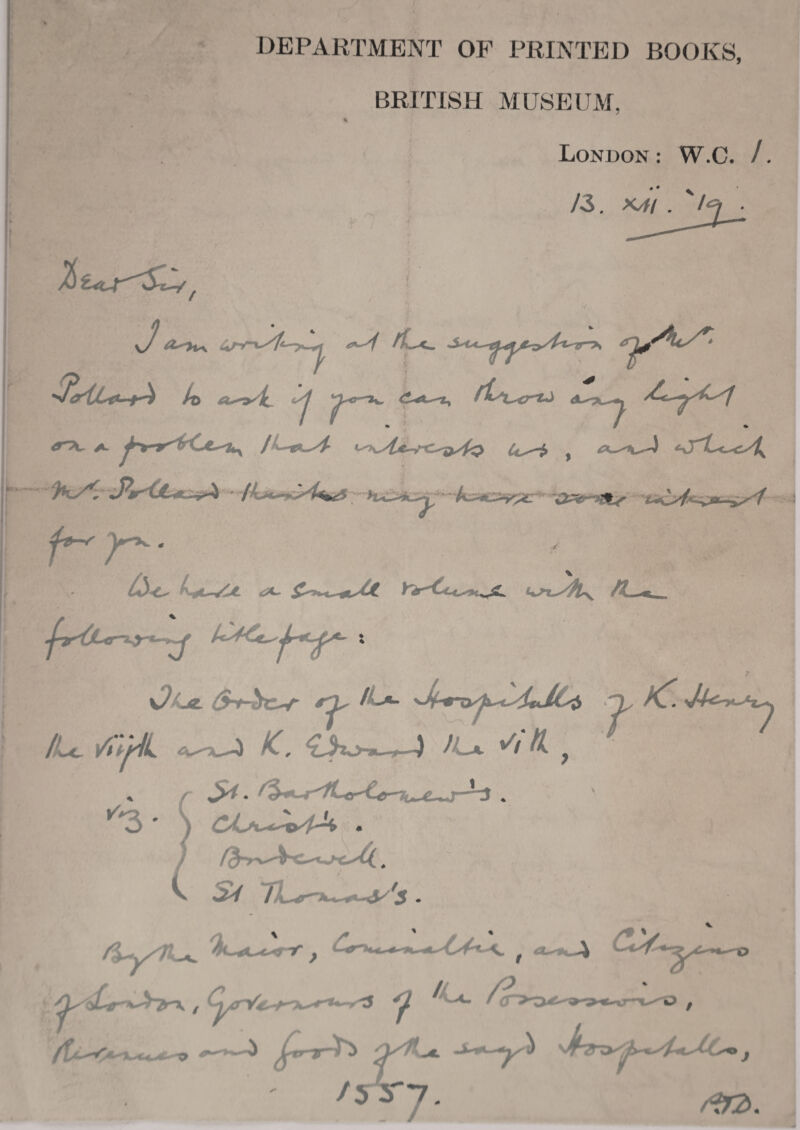 DEPARTMENT OF PRINTED BOOKS,
BRITISH MUSEUM,
LONDON: W.C. 1.
13. XII. '19.
Dear Sir,
I am writing at the suggestion of Mr.
Pollard to ask if you can throw any light
on a problem that interests us, and which
Mr. Pollard thinks may have some interest
for you.
We have a small volume with the
following titlepage:
The Order of the Hospitalls of K. Henry
the viijth and K. Edward the vith,
viz. St. Bartholomew's.
Christ's.
Bridewell.
St Thomas's.
By the Maior, Cominaltie, and Citizens
of London, Governours of the Possessions,
Revenues and goods of the sayd Hospitalls,
1557.